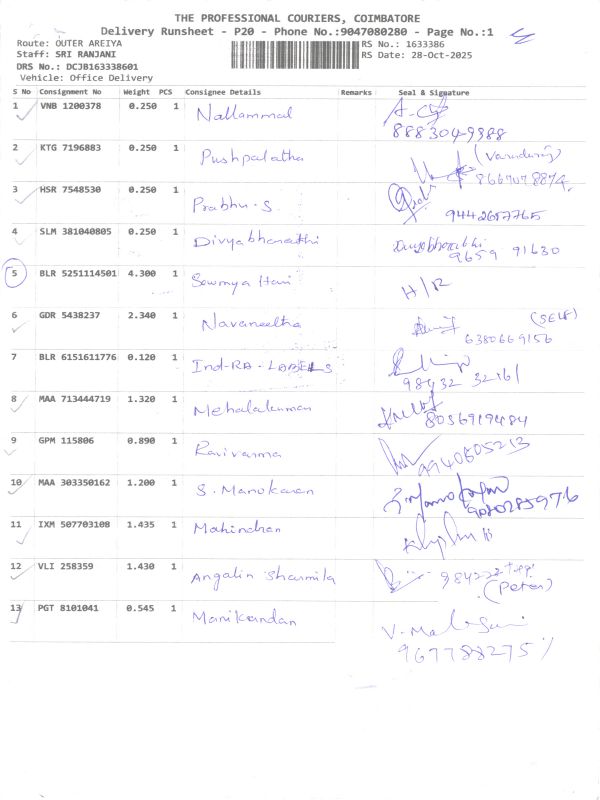 THE PROFESSIONAL COURIERS, COIMBATORE
Delivery Runsheet - P20 - Phone No.:9047080280 - Page No.:1
Route: OUTER AREIYA RS No.: 1633386
Staff: SRI RANJANI RS Date: 28-Oct-2025
DRS No.: DCJB163338601
Vehicle: Office Delivery
S No Consignment No Weight PCS Consignee Details Remarks Seal & Signature
1 VNB 1200378 0.250 1 Nallammal
8883049988
2 KTG 7196883 0.250 1 Pushpalatha
3 HSR 7548530 0.250 1 Prabhu-S
9442617765
4 SLM 381040805 0.250 1 Divyabharathi Divyabharathi
9659 91630
5 BLR 5251114501 4.300 1 Sowmya Hari H/R
6 GDR 5438237 2.340 1 Navaneetha (SELF)
6380669156
7 BLR 6151611776 0.120 1 Ind-RA-LABELS
98432 32161
8 MAA 713444719 1.320 1 Mehalakuman
8056919484
9 GPM 115806 0.890 1 Ravivarma
9940605213
10 MAA 303350162 1.200 1 S. Manokaran
9080285976
11 IXM 507703108 1.435 1 Mahindran
12 VLI 258359 1.430 1 Angalin Sharmila
(Peter)
13 PGT 8101041 0.545 1 Manikandan
9677882751